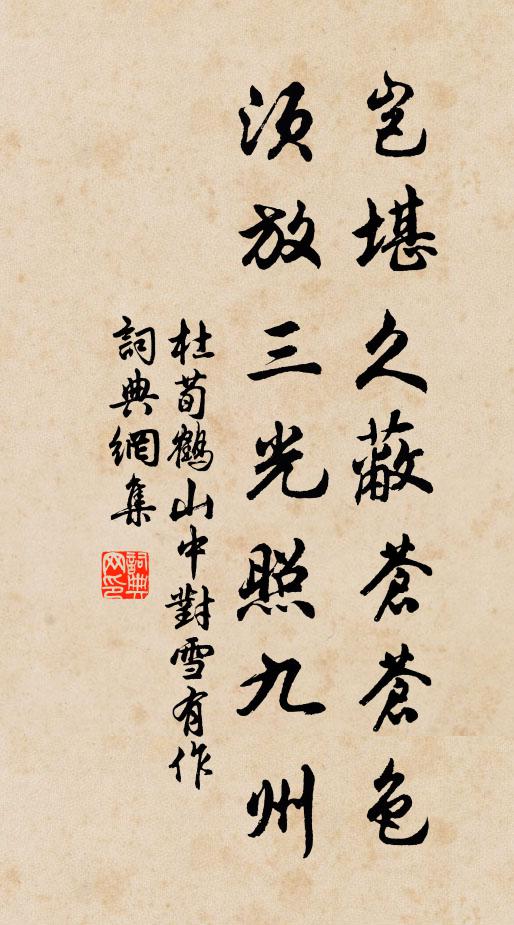 豈堪久蔽蒼蒼色
須放三光照九州
杜荀鶴山中對雪有作
詞典網集
詞典網印